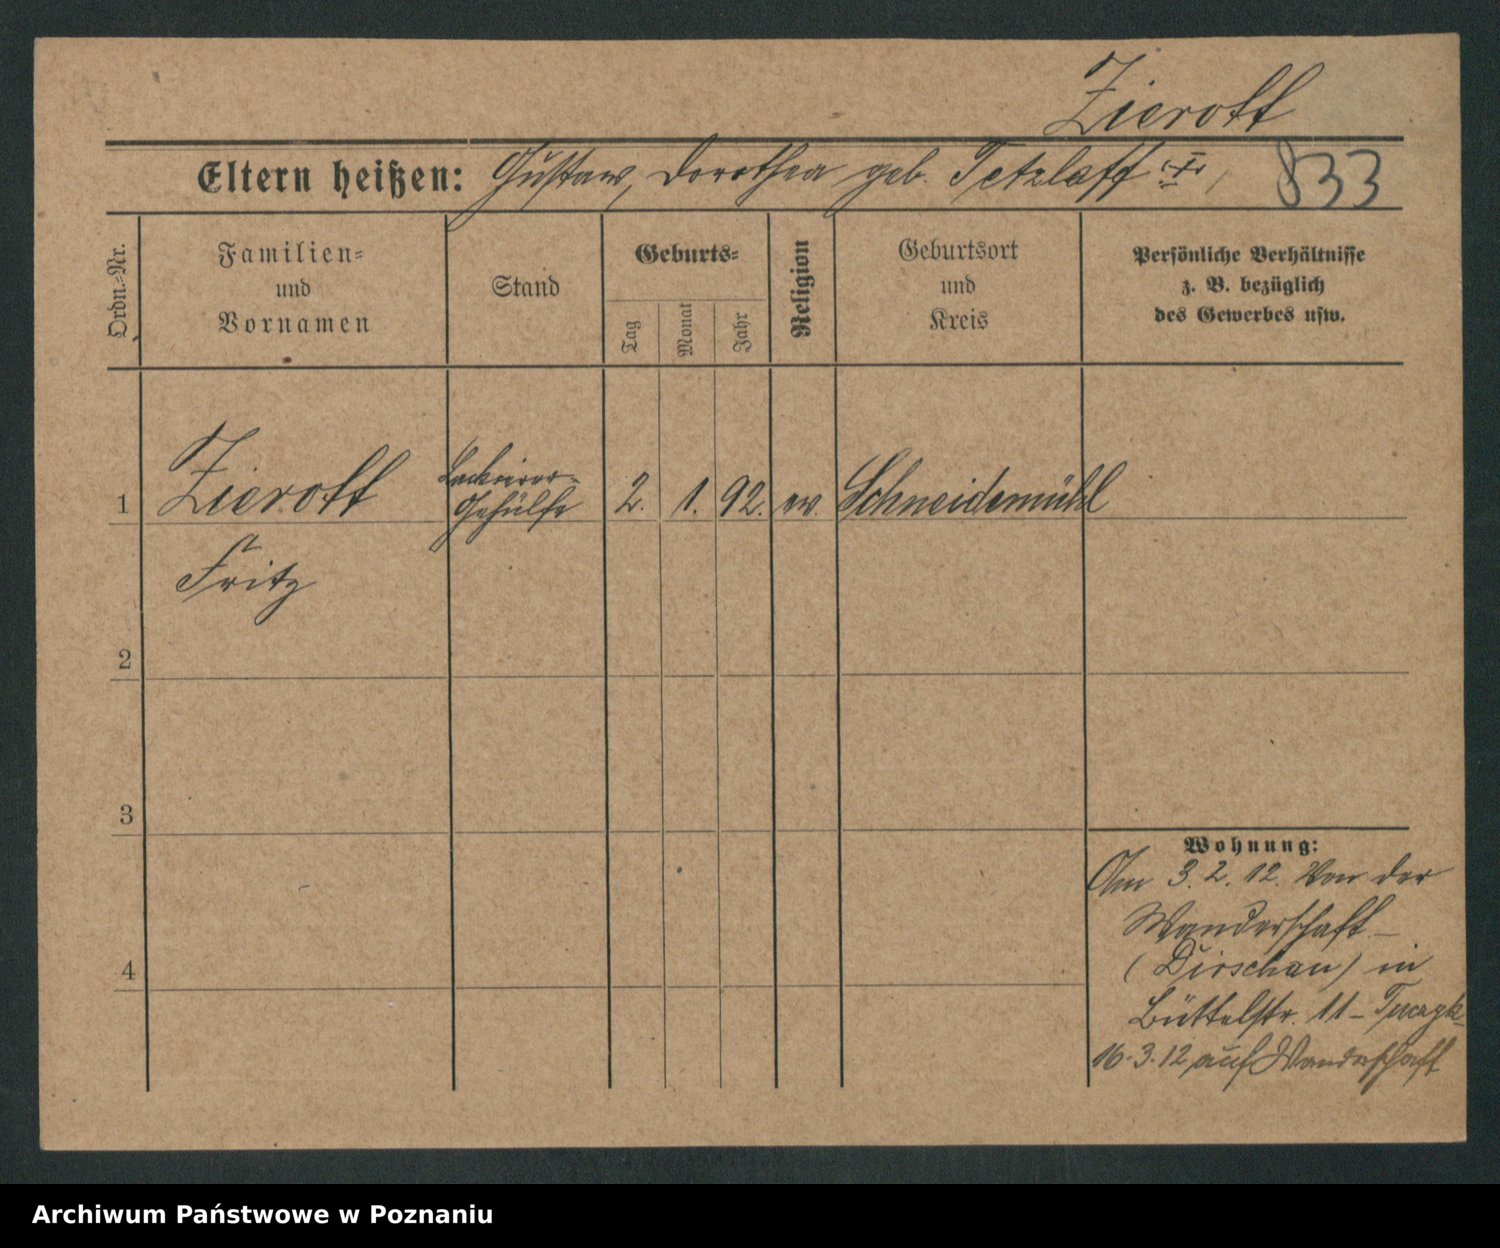 Zierott
Eltern heißen: Gustav, Dorothea geb. Tetzlaff
833
Ordn.-Nr.
Familien-
und
Vornamen
Stand
Geburts-
Tag
Monat
Jahr
Religion
Geburtsort
und
Kreis
Persönliche Verhältnisse
z. B. bezüglich
des Gewerbes usw.
1
Zierott
Lackierer-
Gehülfe
2. 1. 92. ev. Schneidemühl
Fritz
2
3
4
Wohnung:
Am 3. 2. 12. von der
Wanderschaft -
(Dirschau) in
Büttelstr. 11 -
16. 3. 12 auf Wanderschaft
Archiwum Państwowe w Poznaniu